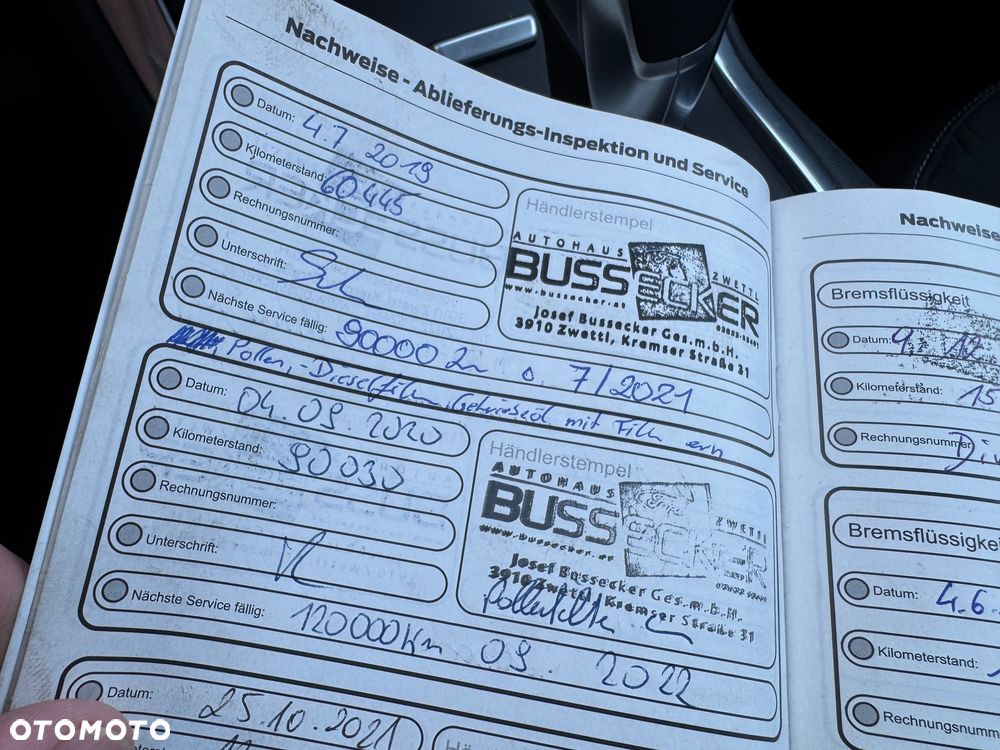 Nachweise - Ablieferungs-Inspektion und Service
Datum: 4.7 2019
Kilometerstand: 60445
Rechnungsnummer:
Unterschrift:
Nächste Service fällig: 90000 o. 7/2021
Händlerstempel
AUTOHAUS
BUSSECKER ZWETTL
www.bussecker.at
Josef Bussecker Ges.m.b.H.
3910 Zwettl, Kremser Straße 31
Pollen,-Dieselfilter, Getriebeöl mit Filter ern
Datum: 04.09.2020
Kilometerstand: 90030
Rechnungsnummer:
Unterschrift:
Nächste Service fällig: 120000Km 09. 2022
Händlerstempel
AUTOHAUS
BUSSECKER ZWETTL
www.bussecker.at
Josef Bussecker Ges.m.b.H.
3910 Zwettl, Kremser Straße 31
Pollenfilter
Datum: 25.10.2021
Hä
Nachweise
Bremsflüssigkeit
Datum:
Kilometerstand: 15
Rechnungsnummer:
Bremsflüssigkei
Datum: 4.6.
Kilometerstand:
Rechnungsnumm
OTOMOTO